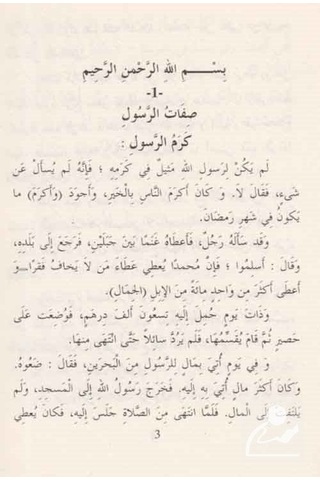 بِسْـــمِ اللهِ الرَّحْمنِ الرَّحِيمِ
-1-
صِفَاتُ الرَّسُولِ
كَرَمُ الرَّسولِ :
لَم يَكُنْ لِرسولِ اللهِ مَثِيلٌ في كَرَمِهِ ؛ فَإِنَّهُ لَم يُسأَلْ عَن
شَيءٍ، فَقَالَ لاَ. وَ كَانَ أَكرَمَ النَّاسِ بِالْخَيرِ، وَأَجوَدَ (وَأَكرَمَ) ما
يَكونُ في شَهرِ رَمضَانَ.
وَ قَد سَأَلَهُ رَجُلٌ، فَأَعطَاهُ غَنَمًا بَينَ جَبَلَينِ، فَرَجَعَ إِلى بَلَدِهِ،
وَقَالَ : أَسلِمُوا ؛ فَإِنَّ مُحمدًا يُعطِي عَطَاءَ مَن لاَ يَخافُ فَقرًا..وَ
أَعطَى أَكثَرَ مِن وَاحِدٍ مِائَةً مِنَ الإِبلِ (الجِمَالِ).
وَ ذَاتَ يَومٍ حُمِلَ إِلَيهِ تِسعُونَ أَلفَ دِرهَمٍ، فَوُضِعَت عَلَى
حَصيرٍ ثُمَّ قَامَ يُقَسِّمُهَا، فَلَم يَرُدَّ سَائلاً حَتَّى انْتَهَى مِنهَا.
وَ في يَومٍ أُتِيَ بِمَالٍ لِلرَّسُولِ مِنَ الْبَحرَينِ، فَقَالَ : ضَعُوهُ.
وَكَانَ أَكثَرَ مالٍ أُتِيَ بِهِ إِلَيهِ. فَخَرَجَ رَسُولُ اللهِ إِلَى الْمَسجِدِ، وَلَم
يَلتَفِتْ إِلَى الْمالِ. فَلَمَّا انتَهَى مِنَ الصَّلاةِ جَلَسَ إِلَيهِ، فَكَانَ يُعطِي
3